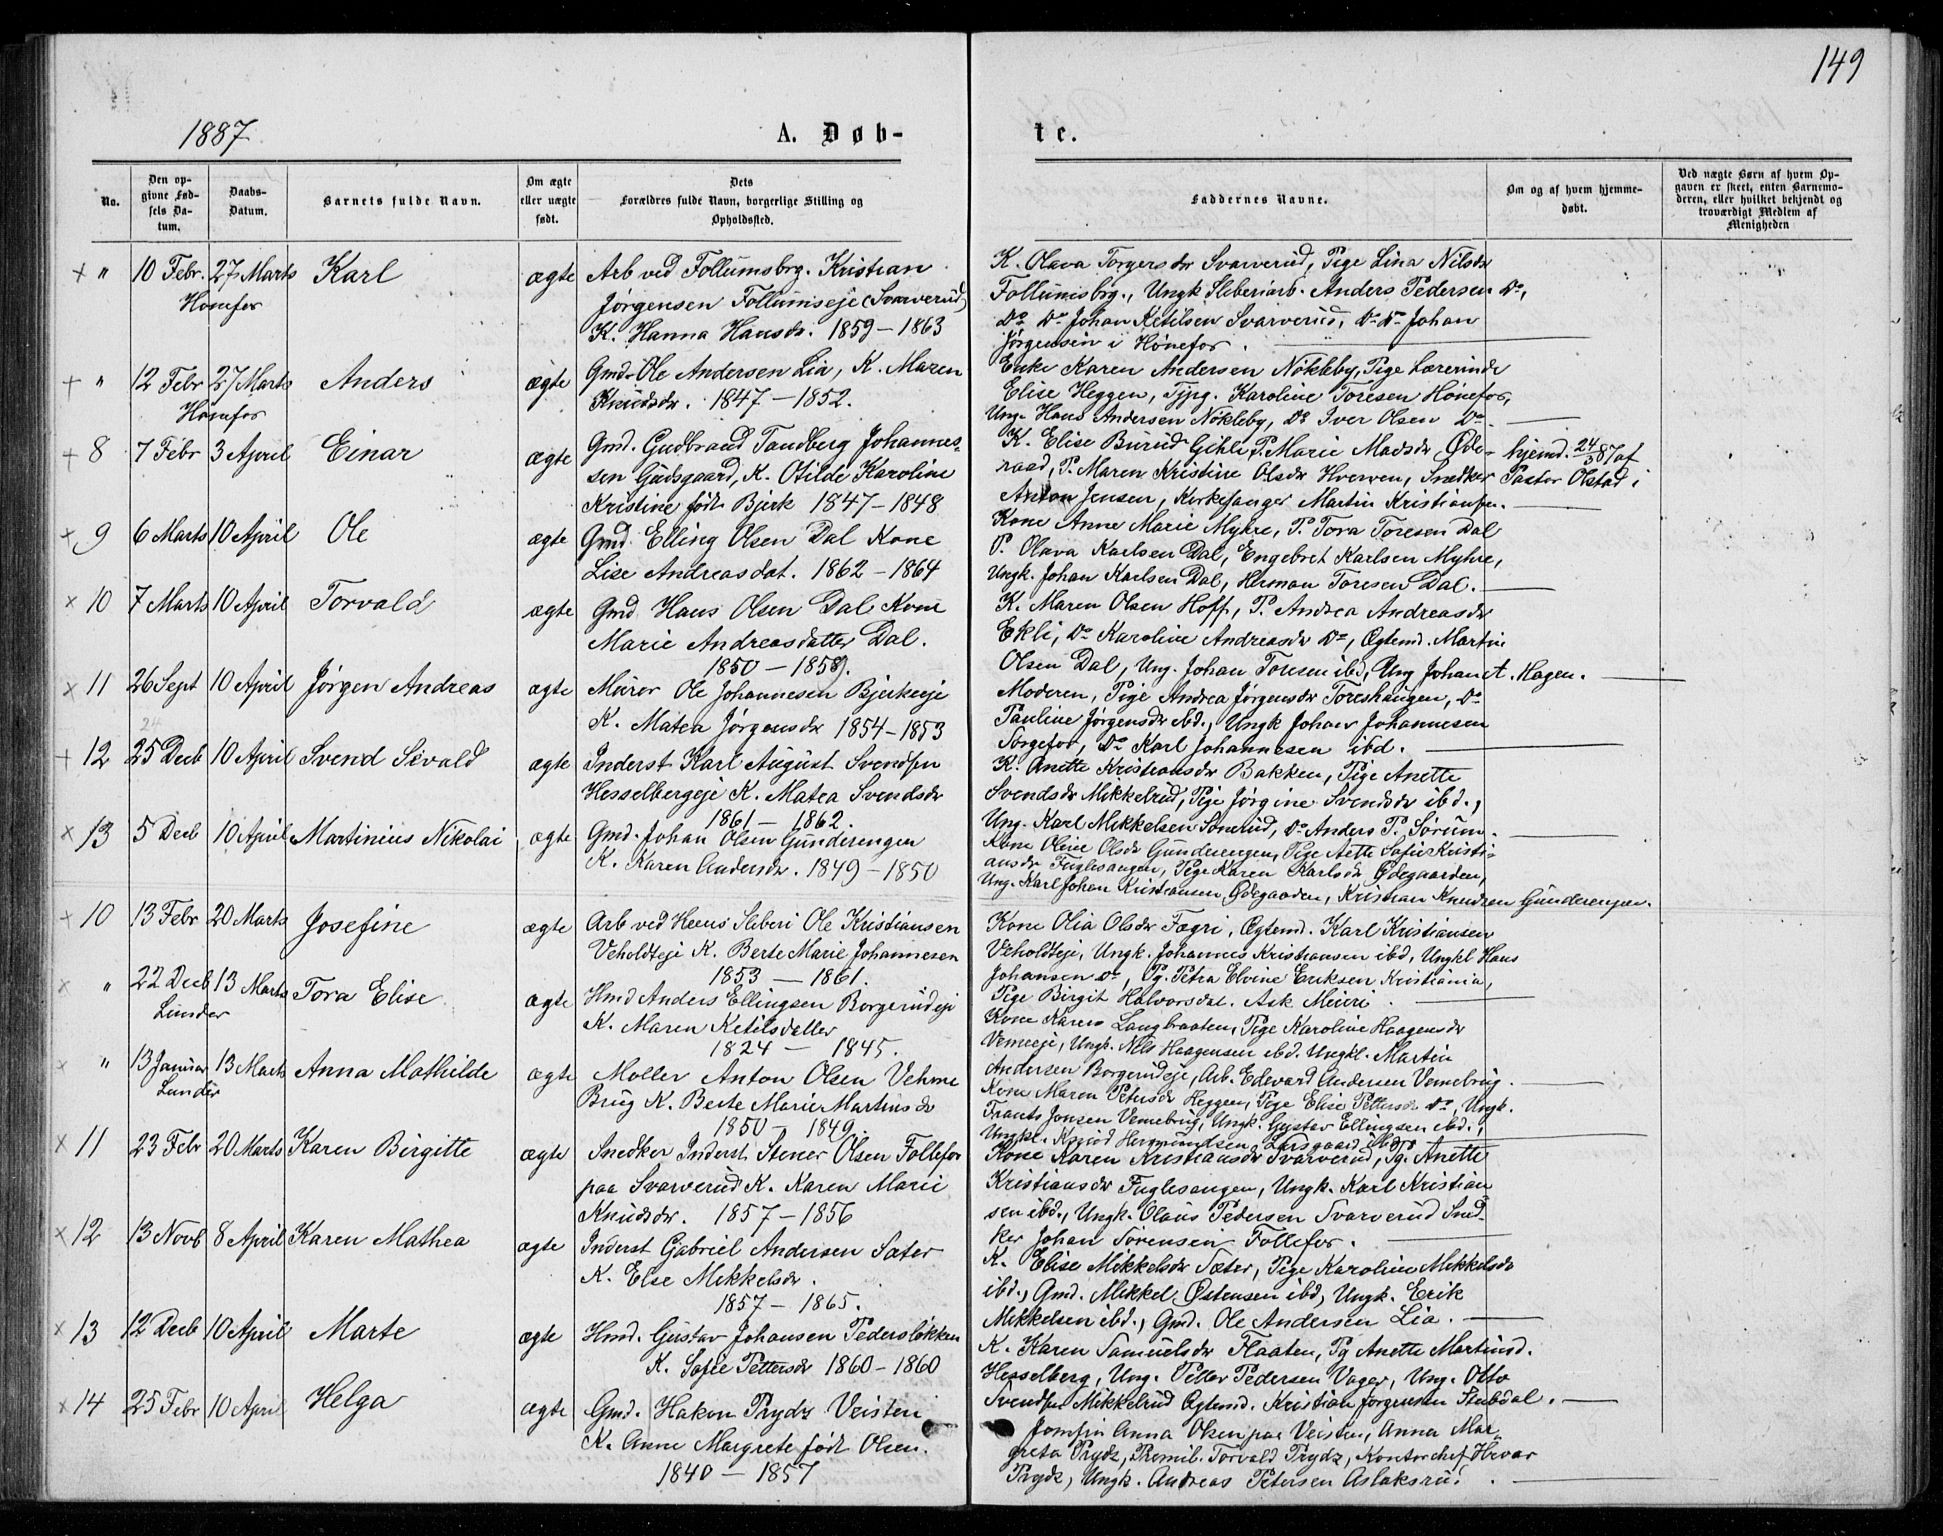 149
1887
A. Døb-
te.
No.
Den op-
givne Fød-
sels Da-
tum.
Daabs-
Datum.
Barnets fulde Navn.
Om ægte
eller uægte
født.
Dets
Forældres fulde Navn, borgerlige Stilling og
Opholdssted.
Faddernes Navne.
Om og af hvem hjemme-
døbt.
Ved uægte Børn af hvem Op-
gaven er skeet, enten Barnemo-
deren, eller hvilket bekjendt og
troværdigt Medlem af
Menigheden
+ " 10 Febr. 27 Marts Karl ægte Arb ved Follumsbrg. Kristian
Hønefos Jørgensen Follumseje (Svarverud)
K. Hanna Hansdr. 1859 – 1863
K. Olava Torgersdr Svarverud, Pige Lina Nilsdr
Follumsbrg., Ungk Sliberiarb. Anders Pedersen Do,
Do Do Johan Ketilsen Svarverud, Do Do Johan
Jørgensen i Hønefos.
+ " 12 Febr 27 Marts Anders ægte Gmd. Ole Andersen Lia, K. Maren
Hønefos Knudsdr. 1847 – 1852.
Enke Karen Andersen Nökleby, Pige Lærerinde
Elise Heggen, Tjpg. Karoline Toresen Hönefos,
Ung. Hans Andersen Nökleby, Do Iver Olsen Do.
+ 8 7 Febr 3 April Einar ægte Gmd. Gudbrand Tandberg Johannes-
sen Gudsgaard, K. Otilde Karoline
Kristine født Bjerk 1847 – 1848
K. Elise Burud Gihle, P. Marie Madsdr Øde-
raad, P. Maren Kristine Olsdr Hverven, Snedker
Anton Jensen, Kirkesanger Martin Kristiansen.
hjemd. 24/3 87 af
Pastor Olstad i
× 9 6 Marts 10 April Ole ægte Gmd. Elling Olsen Dal Kone
Lise Andreasdat. 1862 – 1864
Kone Anne Marie Myhre, P. Tora Toresen Dal
P. Olava Karlsen Dal, Engebret Karlsen Myhre,
Ungk. Johan Karlsen Dal, Herman Toresen Dal.
× 10 7 Marts 10 April Torvald ægte Gmd. Hans Olsen Dal Kone
Marie Andreasdatter Dal.
1850 – 1858.
K. Maren Olsen Hoff, P. Andrea Andreasdr
Ekli, Do Karoline Andreasdr Do, Ægtemd. Martin
Olsen Dal, Ung. Johan Toresen ibd, Ung Johan A. Hagen.
× 11 26 Sept 10 April Jørgen Andreas ægte Murer Ole Johannesen Bjerkeeje
K. Matea Jørgensdr 1854 – 1853
Moderen, Pige Andrea Jørgensdr Toreshaugen, Do
Pauline Jørgensdr ibd., Ungk Johan Johannesen
Sørgefos, Do Karl Johannesen ibd.
24
+ 12 25 Decb 10 April Svend Sivald ægte Inderst Karl August Svendsen
Hesselbergeje K. Matea Svendsdr
1861 – 1862.
K. Anette Kristiansdr Bakken, Pige Anette
Svendsdr Mikkelrud, Pige Jørgine Svendsdr ibd.,
Ung. Karl Mikkelsen Sonerud, Do Anders P. Sørum.
× 13 5 Decb 10 April Martinius Nikolai ægte Gmd. Johan Olsen Gunderengen
K. Karen Andersdr. 1849 – 1850
Kone Oline Olsdr Gunderengen, Pige Sofie Kristi-
ansdr Fuglesangen, Pige Karen Karlsdr Ødegaarden,
Ung. Karl Johan Kristiansen Ødegaarden, Kristian Knudsen Gunderengen.
+ 10 13 Febr 20 Marts Josefine ægte Arb ved Heens Sliberi Ole Kristiansen
Veholdteje K. Berte Marie Johannesen
1853 – 1861.
Kone Olia Olsdr Fægri, Ægtemd. Karl Kristiansen
Veholdteje, Ungk. Johannes Kristiansen ibd, Ungkl Hans
Johansen Do, Pg. Petra Elvine Eriksen Kristiania,
Pige Birgit Halvorsdat. Ask Meieri.
× " 22 Decb 13 Marts Tora Elise ægte Hmd Anders Ellingsen Borgerudeje
Lunder K. Maren Ketilsdatter
1824 – 1845.
Kone Karen Langbraaten, Pige Karoline Haagensdr
Vemeeje, Ungk. Nils Haagensen ibd. Ungkl. Martin
Andersen Borgerudeje, Arb. Edevard Andersen Vemebrug.
× " 13 Januar 13 Marts Anna Mathilde ægte Møller Anton Olsen Vehme
Lunder Brug K. Berte Marie Martinsdr
1850 – 1849.
Kone Maren Petersdr Heggen, Pige Elise Pettersdr Do, Ungk.
Frants Jonsen Vemebrug, Ungk. Gustav Ellingsen ibd.,
Ungkl. Knud Hermundsen
× 11 23 Febr 20 Marts Karen Birgitte ægte Snedker Inderst Stener Olsen Follefos
paa Svarverud K. Karen Marie
Knudsdr. 1857 – 1856
Kone Karen Kristiansdr Svarverud, Pg. Anette
Kristiansdr Fuglesangen, Ungk. Karl Kristian
sen ibd., Ungk. Olaus Pedersen Svarverud Sned-
ker Johan Sørensen Follefos.
× 12 13 Novb 8 April Karen Mathea ægte Inderst Gabriel Andersen Sæter
K. Else Mikkelsdr.
1857 – 1865.
K. Elise Mikkelsdr Sæter, Pige Karoline Mikkelsdr
ibd., Gmd. Mikkel Østensen ibd, Ungk. Erik
Mikkelsen ibd., Gmd. Ole Andersen Lia.
× 13 12 Decb 10 April Marte ægte Hmd. Gustav Johansen Pedersløkken
K. Sofie Pettersdr 1860 – 1860
K. Karen Samuelsdr Flaaten, Pg Anette Martinsd.
Hesselberg, Ung. Petter Pedersen Vager, Ung. Otto
Svendsen Mikkelrud Ægtemd. Kristian Jørgensen Stubdal.
× 14 25 Febr 10 April Helga ægte Gmd. Hakon Prydz Veisten
K. Anne Margrete født Olsen.
1840 – 1857
Jomfru Anna Olsen paa Veisten, Anna Mar-
greta Prydz, Premil. Torvald Prydz, Kontorchef Hervar
Prydz, Ungk. Andreas Petersen Aslaksrud.